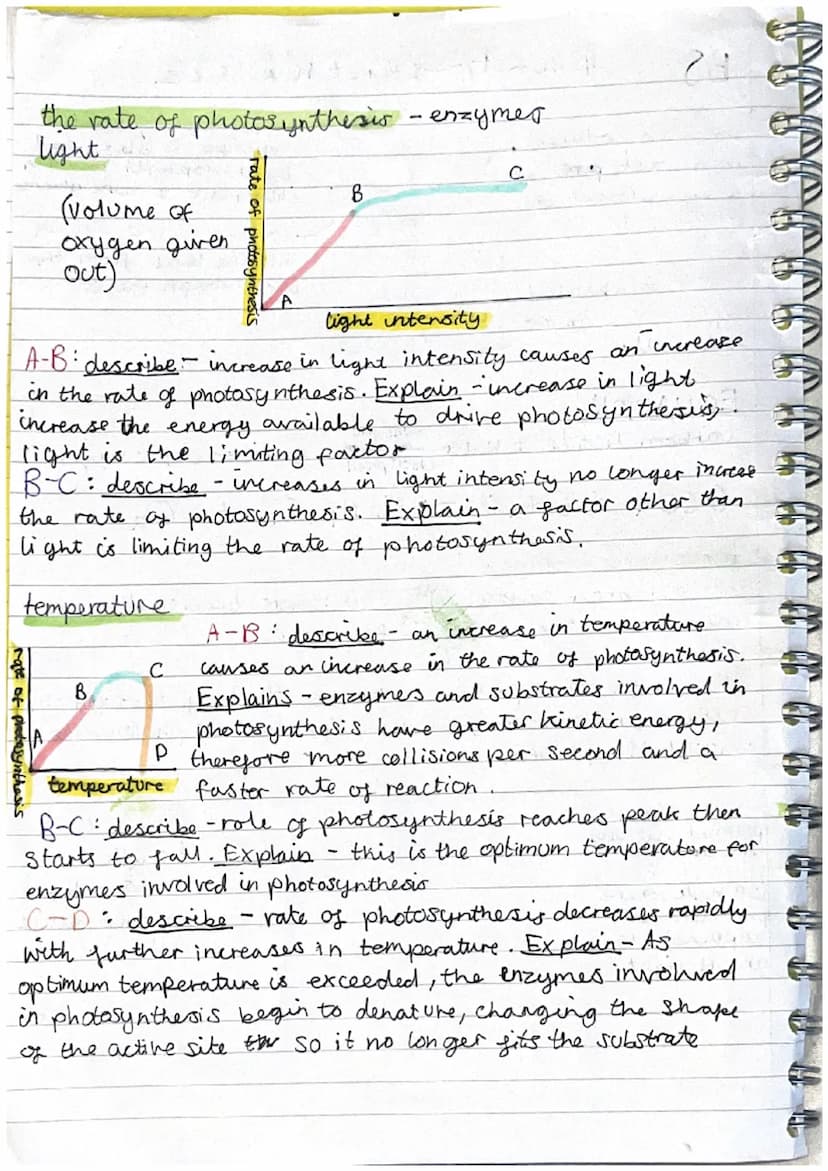 the rate of photosynthesis - enzymes
light
(volume of
oxygen given
out)
rate of photosynthesis
A
B
C
light intensity
A-B: describe - increase in light intensity causes an increase
in the rate of photosynthesis. Explain - increase in light
increase the energy available to drive photosynthesis,
light is the limiting factor
B-C: describe - increases in light intensity no longer increase
the rate of photosynthesis. Explain - a factor other than
light is limiting the rate of photosynthesis.
temperature
rate of photosynthesis
A
B
C
D
temperature
A-B: describe - an increase in temperature
causes an increase in the rate of photosynthesis.
Explains - enzymes and substrates involved in
photosynthesis have greater kinetic energy,
therefore more collisions per second and a
faster rate of reaction.
B-C: describe - role of photosynthesis reaches peak then
starts to fall. Explain - this is the optimum temperature for
enzymes involved in photosynthesis
C-D: describe - rate of photosynthesis decreases rapidly
with further increases in temperature. Explain - As
optimum temperature is exceeded, the enzymes involved
in photosynthesis begin to denature, changing the shape
of the active site so it no longer fits the substrate